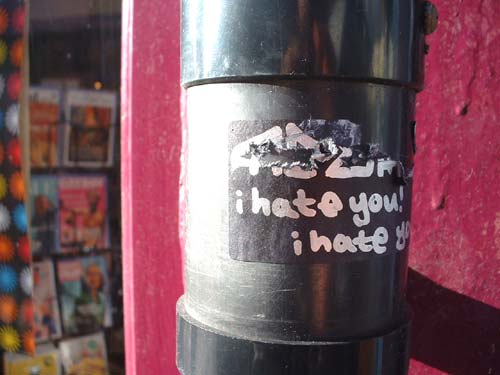 i hate you!
i hate yo